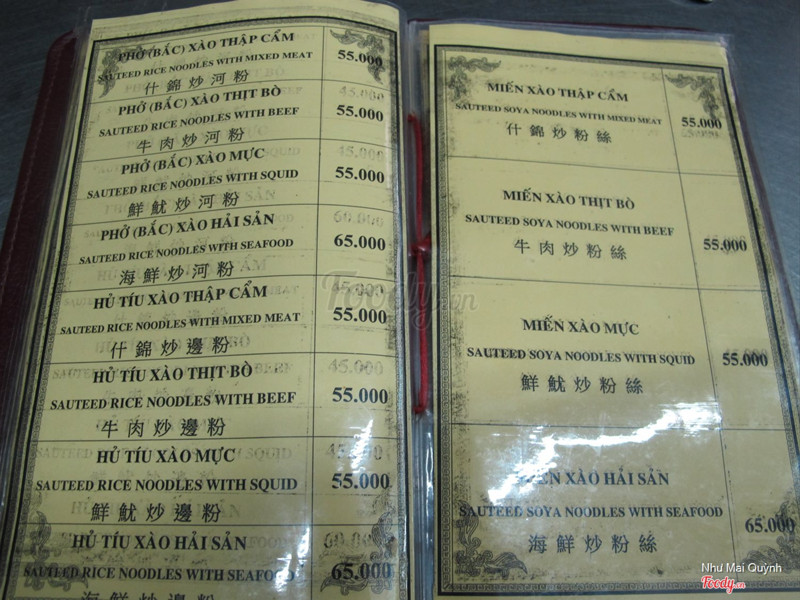 PHỞ (BẮC) XÀO THẬP CẨM
SAUTEED RICE NOODLES WITH MIXED MEAT
什錦炒河粉
55.000
PHỞ (BẮC) XÀO THỊT BÒ
SAUTEED RICE NOODLES WITH BEEF
牛肉炒河粉
55.000
PHỞ (BẮC) XÀO MỰC
SAUTEED RICE NOODLES WITH SQUID
鮮魷炒河粉
55.000
PHỞ (BẮC) XÀO HẢI SẢN
SAUTEED RICE NOODLES WITH SEAFOOD
海鮮炒河粉
65.000
HỦ TÍU XÀO THẬP CẨM
SAUTEED RICE NOODLES WITH MIXED MEAT
什錦炒邊粉
55.000
HỦ TÍU XÀO THỊT BÒ
SAUTEED RICE NOODLES WITH BEEF
牛肉炒邊粉
55.000
HỦ TÍU XÀO MỰC
SAUTEED RICE NOODLES WITH SQUID
鮮魷炒邊粉
55.000
HỦ TÍU XÀO HẢI SẢN
SAUTEED RICE NOODLES WITH SEAFOOD
海鮮炒邊粉
65.000
MIẾN XÀO THẬP CẨM
SAUTEED SOYA NOODLES WITH MIXED MEAT
什錦炒粉絲
55.000
MIẾN XÀO THỊT BÒ
SAUTEED SOYA NOODLES WITH BEEF
牛肉炒粉絲
55.000
MIẾN XÀO MỰC
SAUTEED SOYA NOODLES WITH SQUID
鮮魷炒粉絲
55.000
XÀO HẢI SẢN
SAUTEED SOYA NOODLES WITH SEAFOOD
海鮮炒粉絲
65.000
Foody.vn
Như Mai Quỳnh
Foody.vn